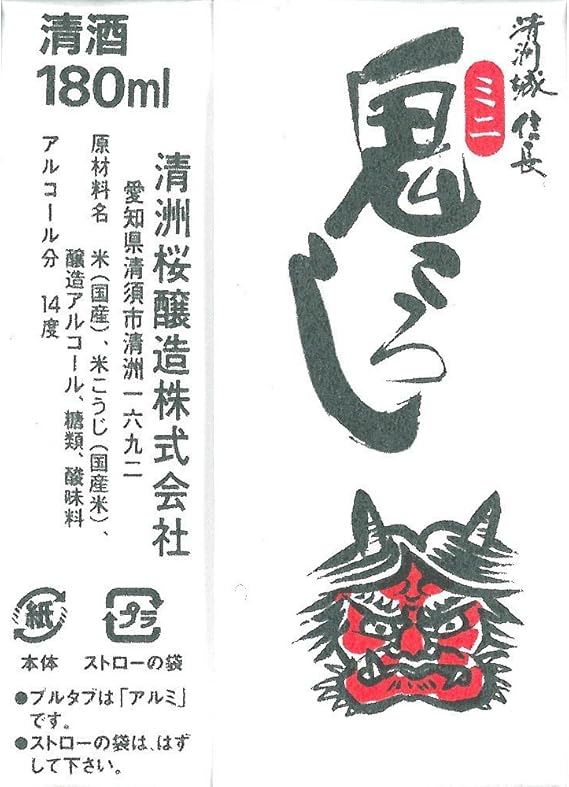 清酒
180ml
清洲桜醸造株式会社
愛知県清須市清洲一六九二
原材料名 米(国産)、米こうじ(国産米)、
醸造アルコール、糖類、酸味料
アルコール分 14度
紙
プラ
本体 ストローの袋
●プルタブは「アルミ」
です。
●ストローの袋は、はず
して下さい。
清洲城 信長
ミニ
鬼ころし